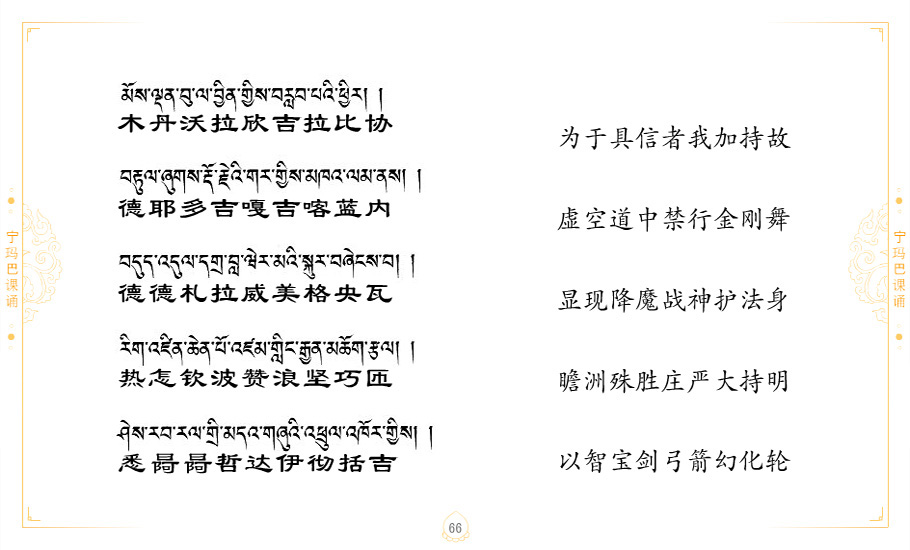 མོས་ལྡན་བུ་ལ་བྱིན་གྱིས་བརླབ་པའི་ཕྱིར། །
木丹沃拉欣吉拉比协
为于具信者我加持故
བརྟུལ་ཞུགས་རྡོ་རྗེའི་གར་གྱིས་མཁའ་ལམ་ནས། །
德耶多吉嘎吉喀蓝内
虚空道中禁行金刚舞
བདུད་འདུལ་དགྲ་བླ་ཝེར་མའི་སྐུར་བཞེངས་བ། །
德德札拉威美格央瓦
显现降魔战神护法身
རིག་འཛིན་ཆེན་པོ་འཛམ་གླིང་རྒྱན་མཆོག་རྩལ། །
热怎钦波赞浪坚巧匝
瞻洲殊胜庄严大持明
ཤེས་རབ་རལ་གྲི་མདའ་གཞུའི་འཕྲུལ་འཁོར་གྱིས། །
悉哲达伊彻括吉
以智宝剑弓箭幻化轮
宁玛巴课诵
宁玛巴课诵
66